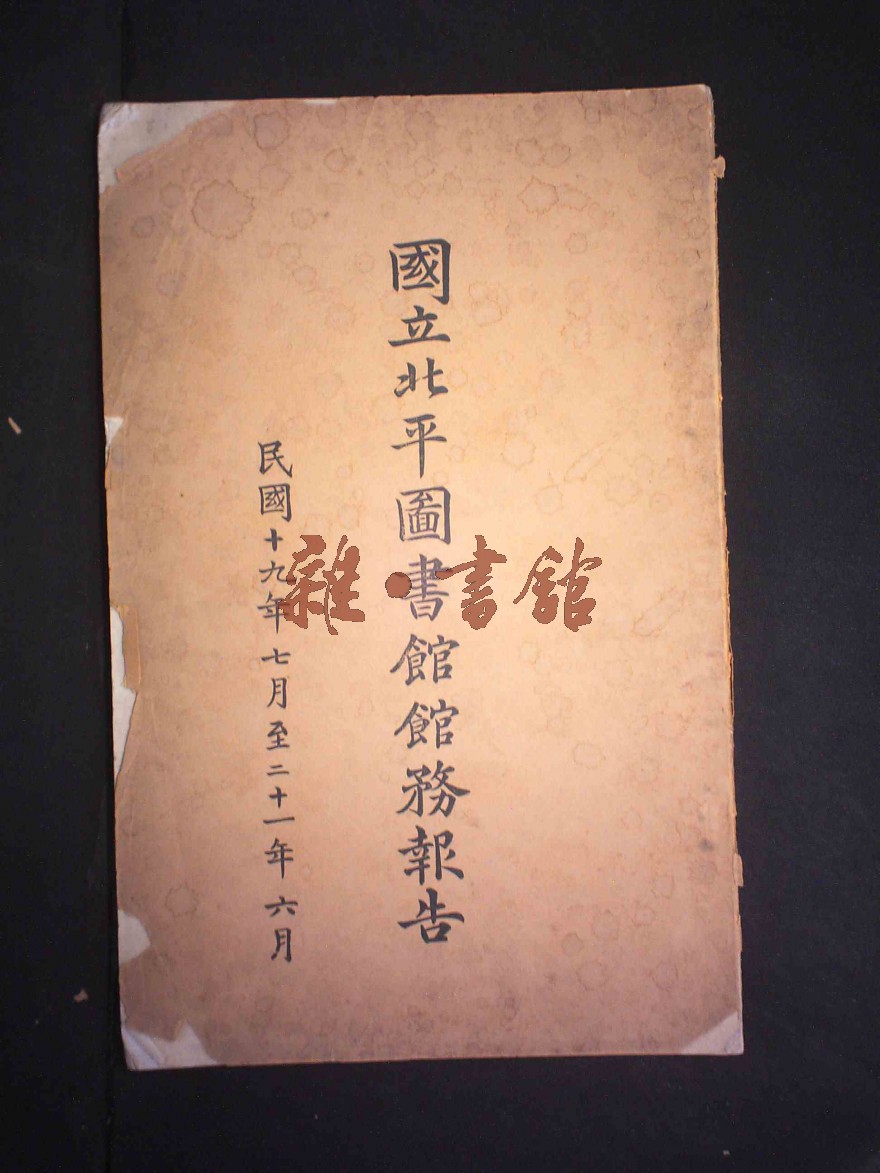 國立北平圖書館館務報告
民國十九年七月至二十一年六月
雜·書館